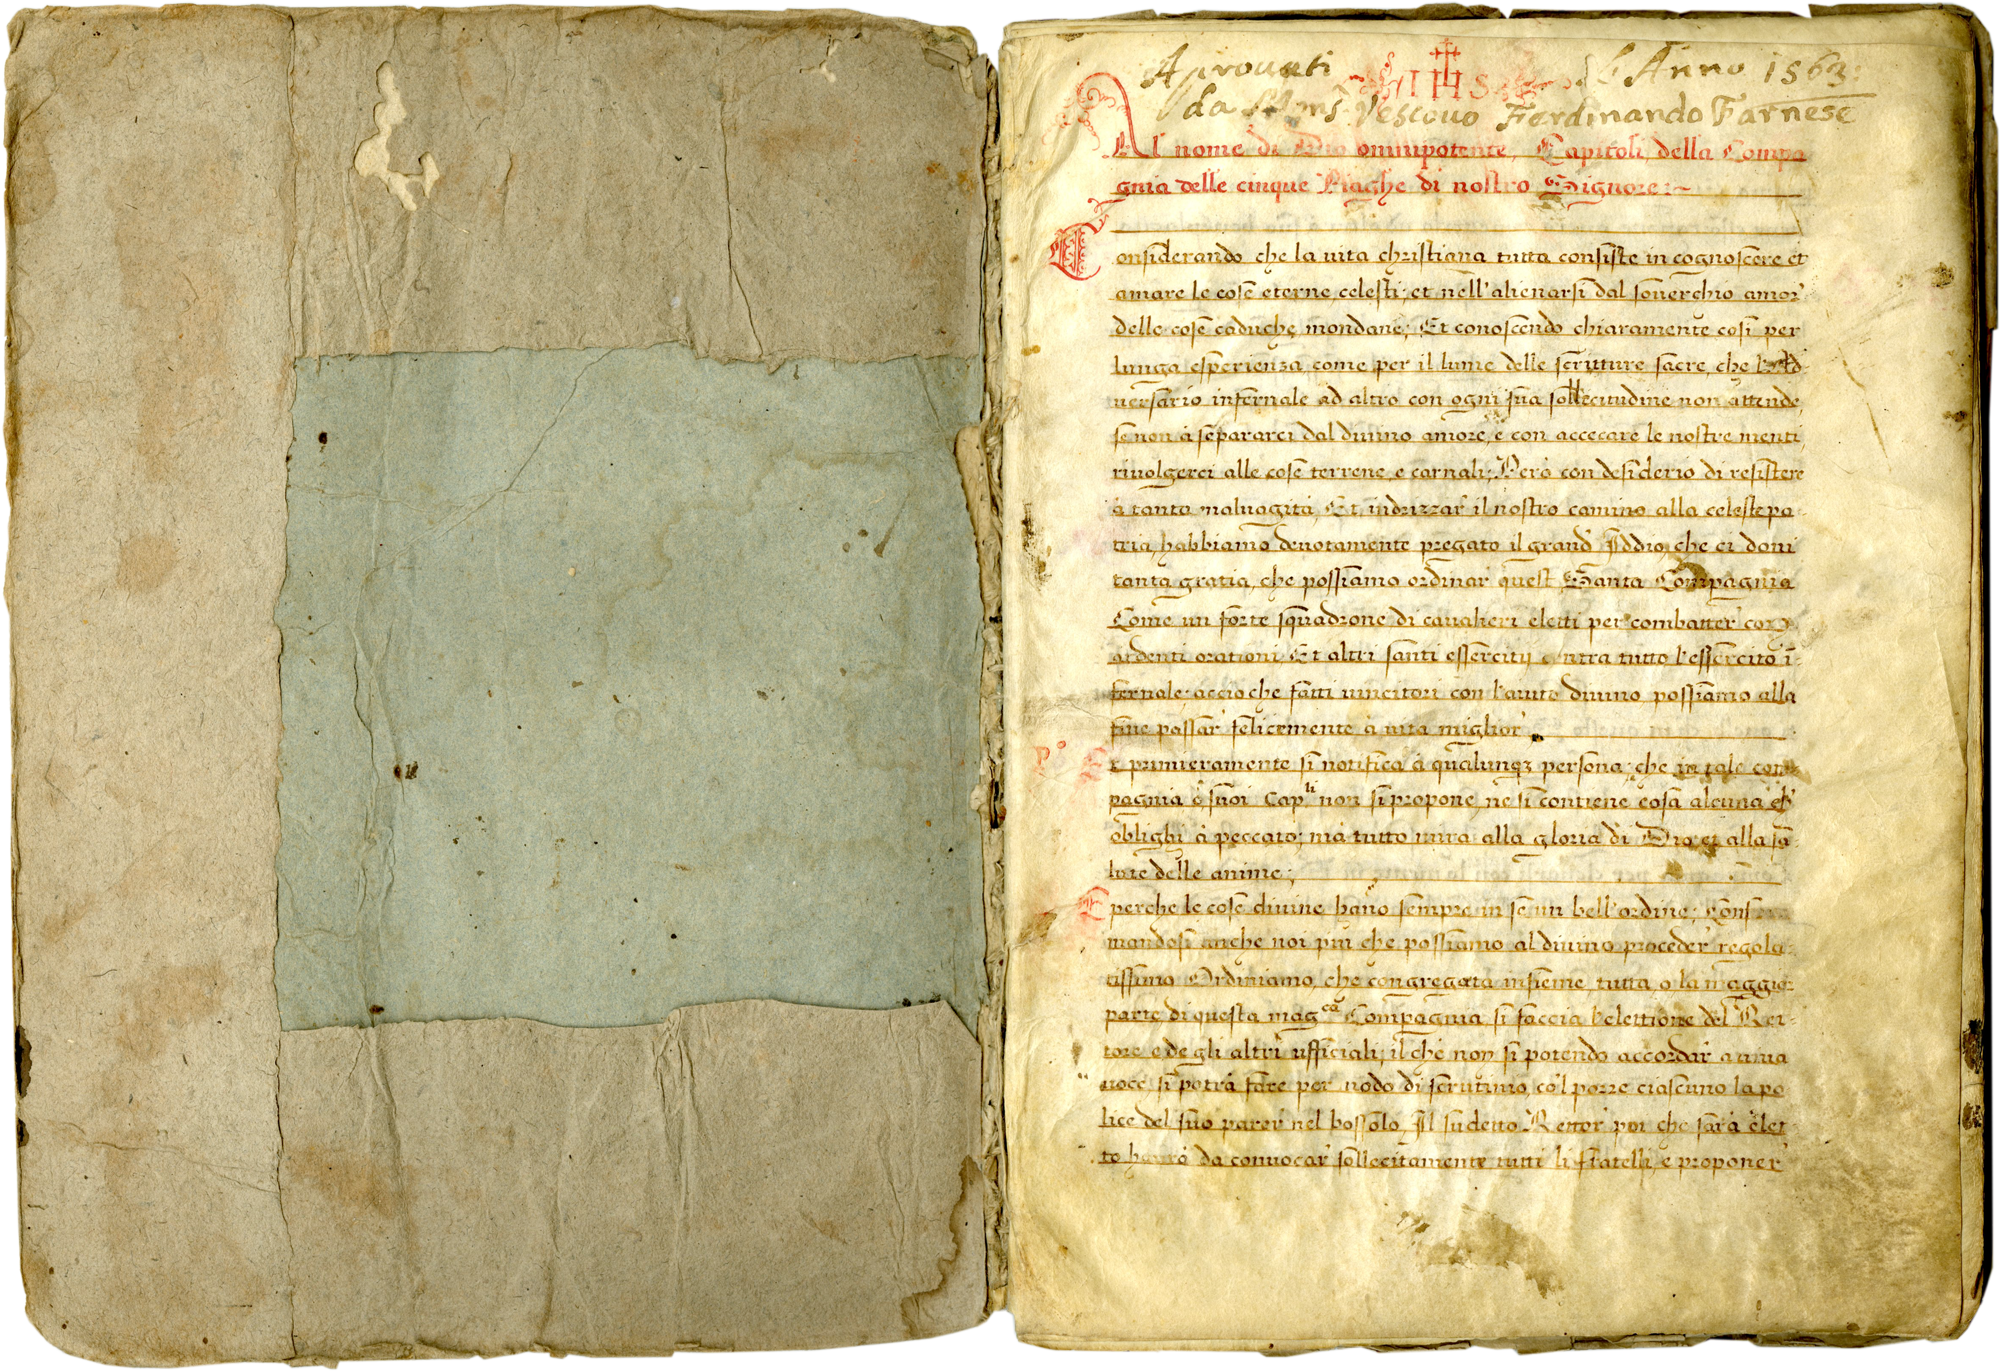 Aprouati IHS l'Anno 1563:
da Mons.r Vescouo Ferdinando Farnese
Al nome di Dio omnipotente, Capitoli della Compa
gnia delle cinque Piaghe di nostro Signore:~
Considerando che la uita christiana tutta consiste in cognoscere et
amare le cose eterne celesti: et nell'alienarsi dal souerchio amor'
delle cose caduche mondane; Et conoscendo chiaramente cosi per
lunga esperienza come per il lume delle scritture sacre, che l'Ad
uersario infernale ad altro con ogni sua sollecitudine non attende,
se non à separarci dal diuino amore, e con accecare le nostre menti
riuolgerci alle cose terrene, e carnali; Però con desiderio di resistere
à tanta maluagità, Et indrizzar' il nostro camino alla celeste pa-
tria, habbiamo deuotamente pregato il grand' Iddio, che ci doni
tanta gratia, che possiamo ordinar' quest Santa Compagnia
Come un forte squadrone di caualieri eletti per combatter con
ardenti orationi Et altri santi essercitij contra tutto l'essercito ī-
fernale: acciò che fatti uincitori con l'aiuto diuino possiamo alla
fine passar' felicemente à uita miglior'
P.o Et primieramente si notifica à qualunqz persona, che in tale com
pagnia ò suoi Cap.li non si propone, ne si contiene cosa alcuna ch'
oblighi à peccato; mà tutto mira alla gloria di Dio et alla sa
lute delle anime;
E perche le cose diuine hano sempre in se un bell'ordine; Confor
mandosi anche noi più che possiamo al diuino proceder' regola-
tissimo Ordiniamo, che congregata insieme, tutta, o la maggior
parte di questa mag.ca Compagnia si faccia l'elettione del Ret-
tore e de gli altri ufficiali, il che non si potendo accordar' a uiua
uoce, si potrà fare per modo di scrutinio, co'l porre ciascuno la po
lice del suo parer' nel bossolo, Il sudetto Rettor' poi che sarà elet
to haurà da conuocar' sollecitamente tutti li fratelli, e proponer'